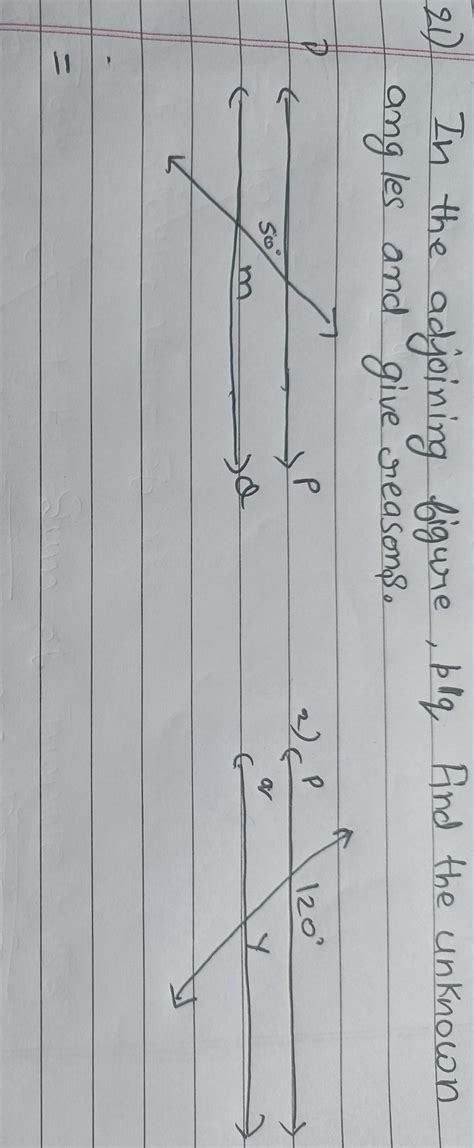 21) In the adjoining figure, p||q Find the unknown
angles and give reasons.
1)
P
50°
m
Q
2)
P
120°
q
y
=